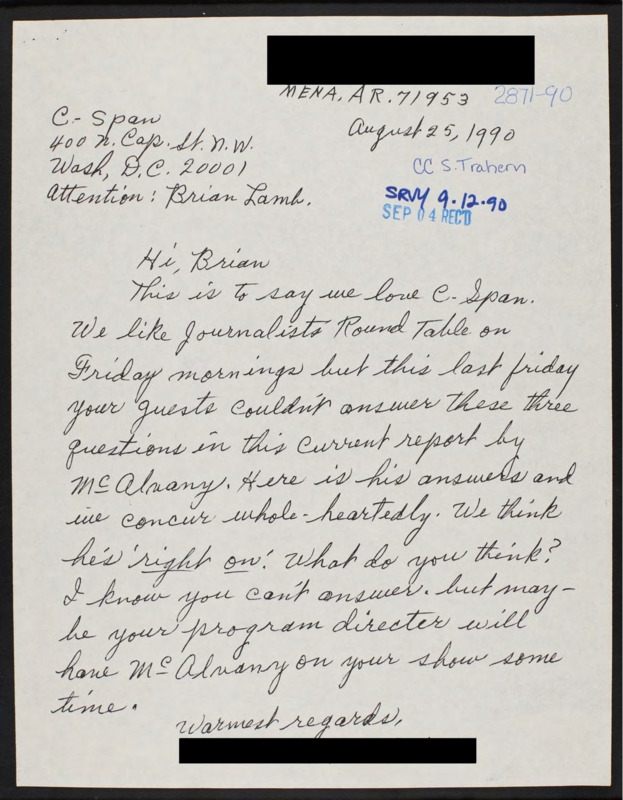 MENA, AR. 71953
2871-90
C-Span
400 N. Cap. St. N.W.
Wash, D.C. 20001
Attention: Brian Lamb.
August 25, 1990
CC S. Trahern
SRVY 9.12.90
SEP 04 REC'D
Hi, Brian
This is to say we love C-Span.
We like Journalists Round Table on
Friday mornings but this last friday
your guests couldn't answer these three
questions in this current report by
McAlvany. Here is his answers and
we concur whole-heartedly. We think
he's 'right on'. What do you think?
I know you can't answer. but may-
be your program directer will
have McAlvany on your show some
time.
Warmest regards,